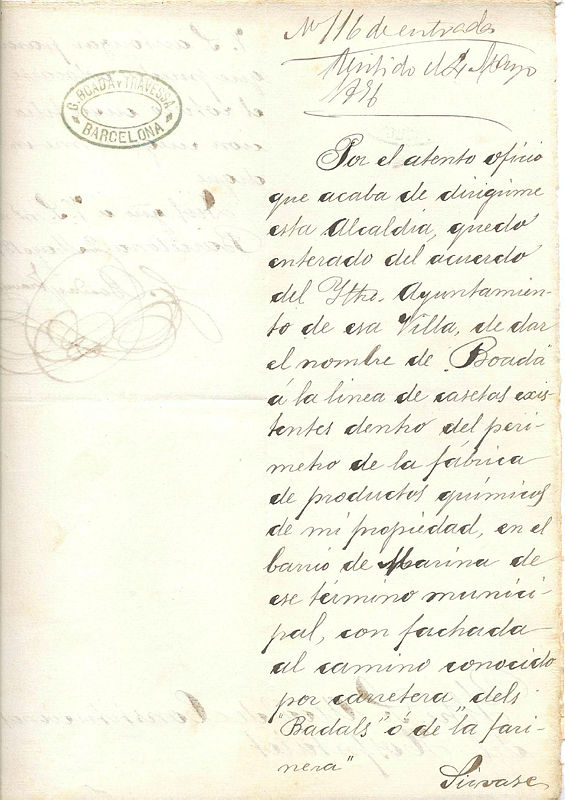 Nº 116 de entrada
Recibido el 24 Mayo
1896
G. BOADA Y TRAVESSA
BARCELONA
Por el atento oficio
que acaba de dirigirme
esta Alcaldía, quedo
enterado del acuerdo
del Iltre. Ayuntamien-
to de esa Villa, de dar
el nombre de Boada
á la linea de casetas exis-
tentes dentro del perí-
metro de la fábrica
de productos químicos
de mi propiedad, en el
barrio de Marina de
ese término munici-
pal, con fachada
al camino conocido
por carretera "dels
Badals" ó "de la fari-
nera"
Sirvase